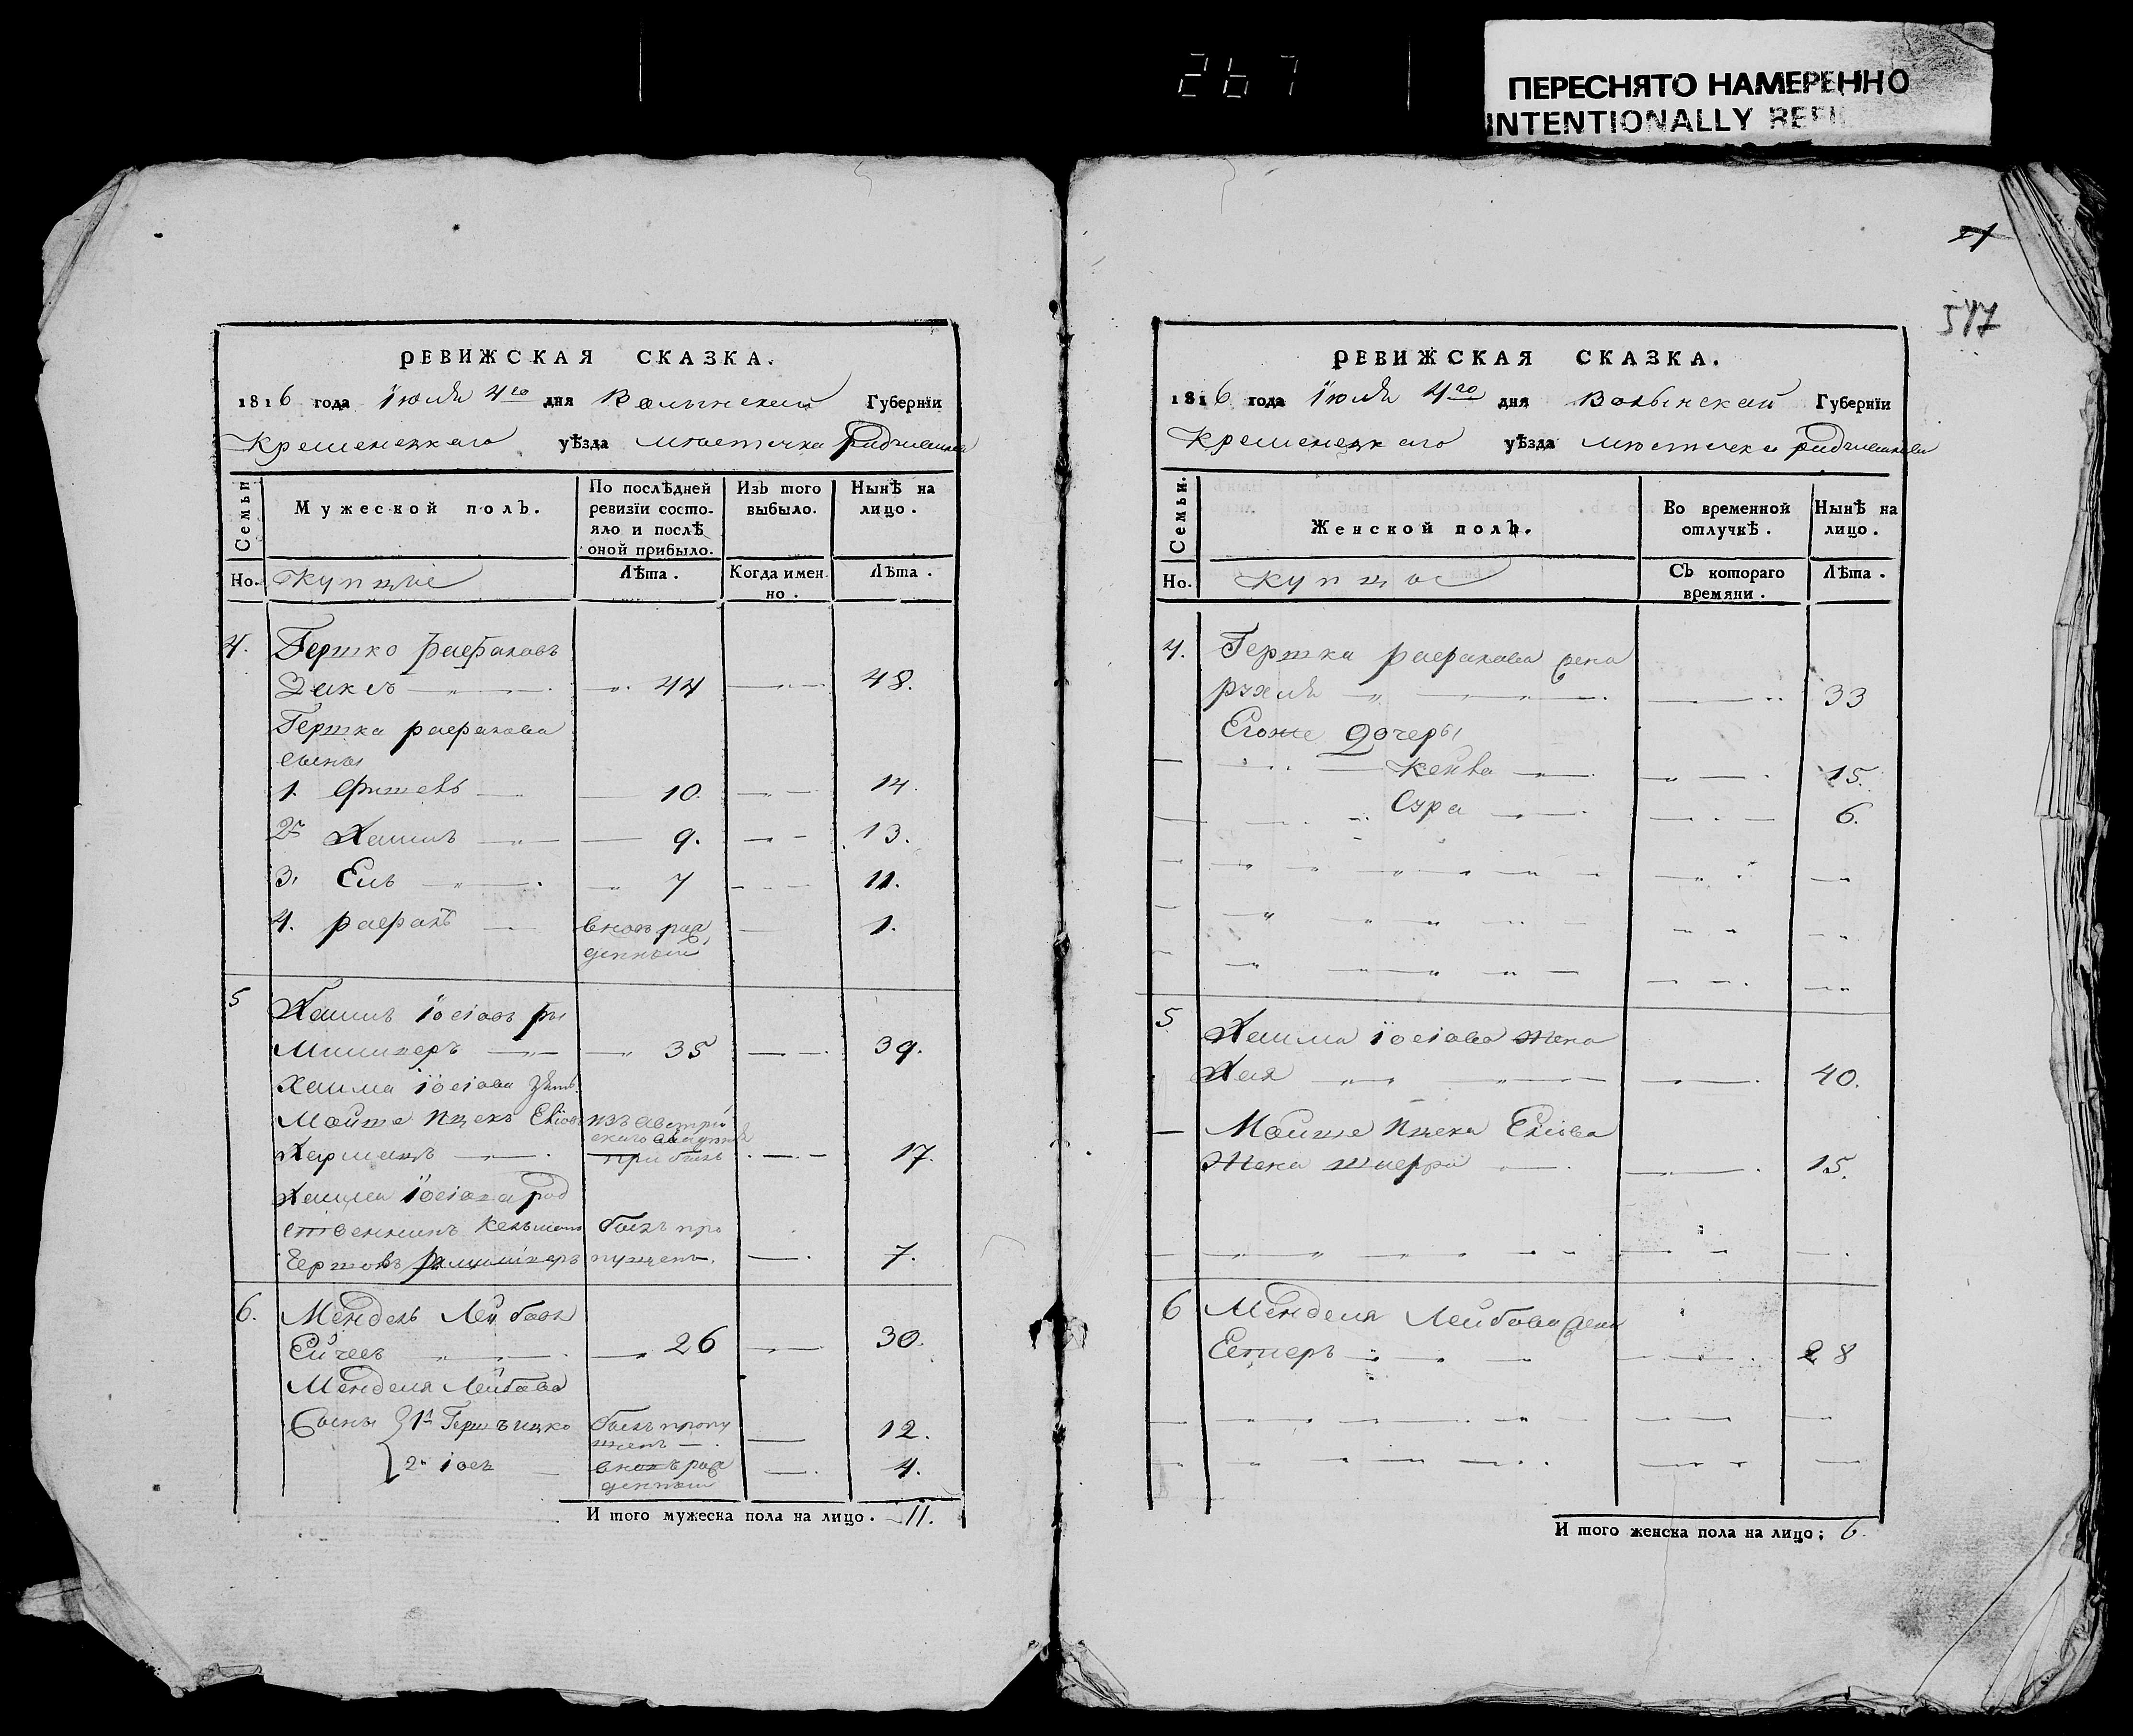 267
ПЕРЕСНЯТО НАМЕРЕННО
INTENTIONALLY
РЕВИЖСКАЯ СКАЗКА.
1816 года Iюля 4го дня Волынской Губернїи
Кременецкаго уѣзда мѣстечка
Семьи
Мужеской полъ.
По послѣдней ревизїи состояло и послѣ оной прибыло.
Изъ того выбыло.
Нынѣ на лицо.
Но. Купцы
Лѣта.
Когда именно.
Лѣта.
4. Гершко Рафаловъ
44 48.
Гершка рафалова
сыны
1. Фишель 10. 14.
2й Хаимъ 9. 13.
3. Ель 7 11.
4. рафалъ вновь рожденный 1.
5 Хаимъ Iосiовъ
35 39.
Хаима Iосiова зять
Мойше Ицекъ Елiовъ изъ австрійскаго
прибылъ 17.
Хаима Iосiова род
ственникъ былъ про
пущенъ. 7.
6. Мендель Лейбовъ
26 30.
Менделя Лейбова
Сыны 1й Гершъ ицко былъ пропущен 12.
2й Iосъ вновъ рожденный 4.
И того мужеска пола на лицо. 11.
21
547
РЕВИЖСКАЯ СКАЗКА.
1816 года Iюля 4го дня Волынской Губернїи
Кременецкаго уѣзда мѣстечка
Семьи.
Женской полъ.
Во временной отлучкѣ.
Нынѣ на лицо.
Но. Купцы
Съ котораго времяни.
Лѣта.
4. Гершка рафалова жена
рухля 33
Егоже дочеры
Кейла 15.
Сура 6.
5 Хаима Iосiова жена
Хая 40.
Мойше Ицека Елiова
жена 15.
6 Менделя Лейбова жена
Естеръ 28
И того женска пола на лицо; 6.